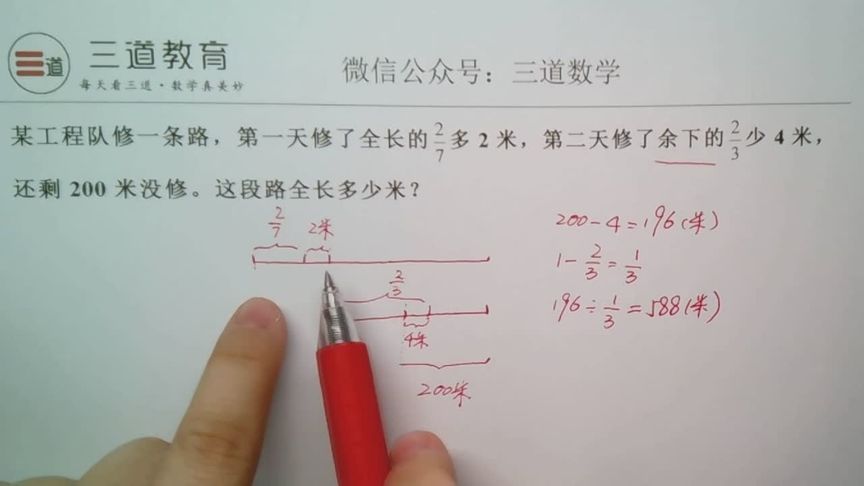 三道
三道教育
每天看三道·数学真美妙
微信公众号：三道数学
某工程队修一条路，第一天修了全长的2/7多 2 米，第二天修了余下的2/3少 4 米，
还剩 200 米没修。这段路全长多少米？
2/7 2米
2/3
4米
200米
200-4=196(米)
1-2/3=1/3
196÷1/3=588(米)